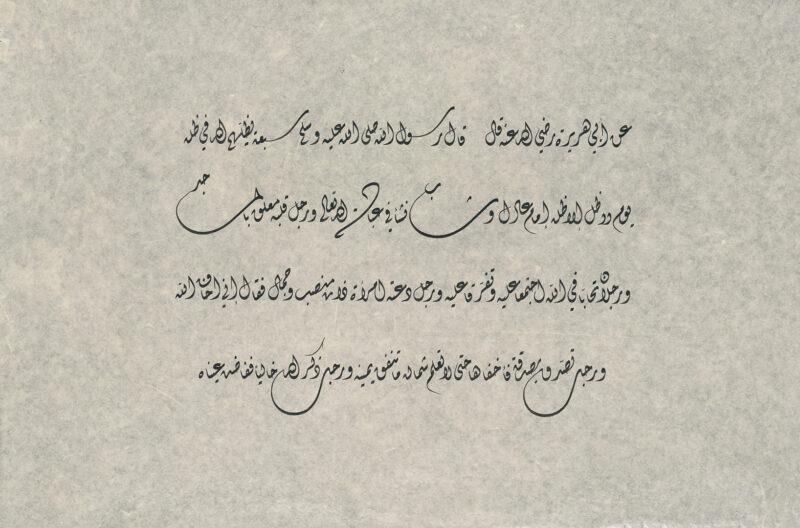 عن ابي هريرة رضي الله عنه قال قال رسول الله صلى الله عليه وسلم سبعة يظلهم الله في ظله
يوم لا ظل الا ظله إمام عادل وشاب نشأ في عبادة الله تعالى ورجل قلبه معلق بالمساجد
ورجلان تحابا في الله اجتمعا عليه وتفرقا عليه ورجل دعته امرأة ذات منصب وجمال فقال إني أخاف الله
ورجل تصدق بصدقة فاخفاها حتى لا تعلم شماله ما تنفق يمينه ورجل ذكر الله خاليا ففاضت عيناه